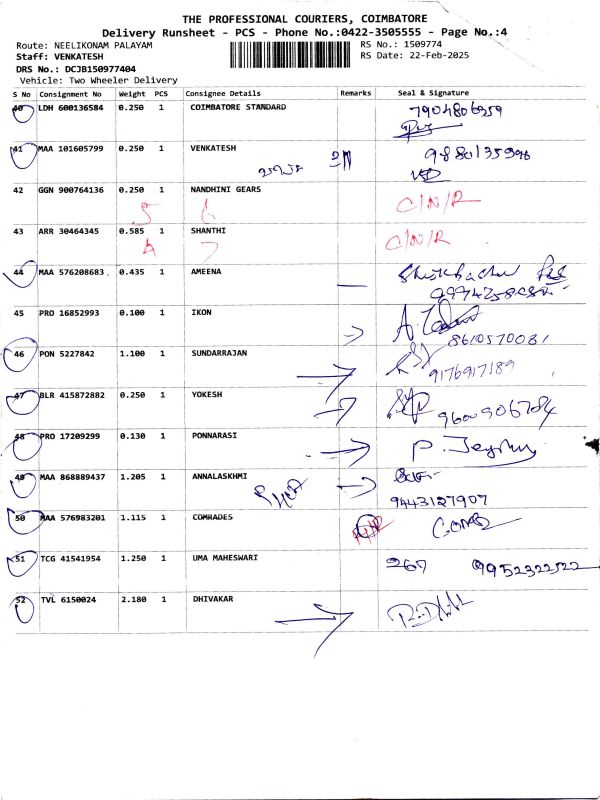 THE PROFESSIONAL COURIERS, COIMBATORE
Delivery Runsheet - PCS - Phone No.:0422-3505555 - Page No.:4
Route: NEELIKONAM PALAYAM RS No.: 1509774
Staff: VENKATESH RS Date: 22-Feb-2025
DRS No.: DCJB150977404
Vehicle: Two Wheeler Delivery
S No Consignment No Weight PCS Consignee Details Remarks Seal & Signature
40 LDH 600136584 0.250 1 COIMBATORE STANDARD 7904806959
41 MAA 101605799 0.250 1 VENKATESH
42 GGN 900764136 0.250 1 NANDHINI GEARS C/N/R
5 6
43 ARR 30464345 0.585 1 SHANTHI C/N/R
4 7
44 MAA 576208683 0.435 1 AMEENA
45 PRO 16852993 0.100 1 IKON
8610570081
46 PON 5227842 1.100 1 SUNDARRAJAN
9176917189
47 BLR 415872882 0.250 1 YOKESH
9600906784
48 PRO 17209299 0.130 1 PONNARASI
49 MAA 868889437 1.205 1 ANNALASKHMI
9443127907
50 MAA 576983201 1.115 1 COMRADES
51 TCG 41541954 1.250 1 UMA MAHESWARI 267 9952322522
52 TVL 6150024 2.180 1 DHIVAKAR